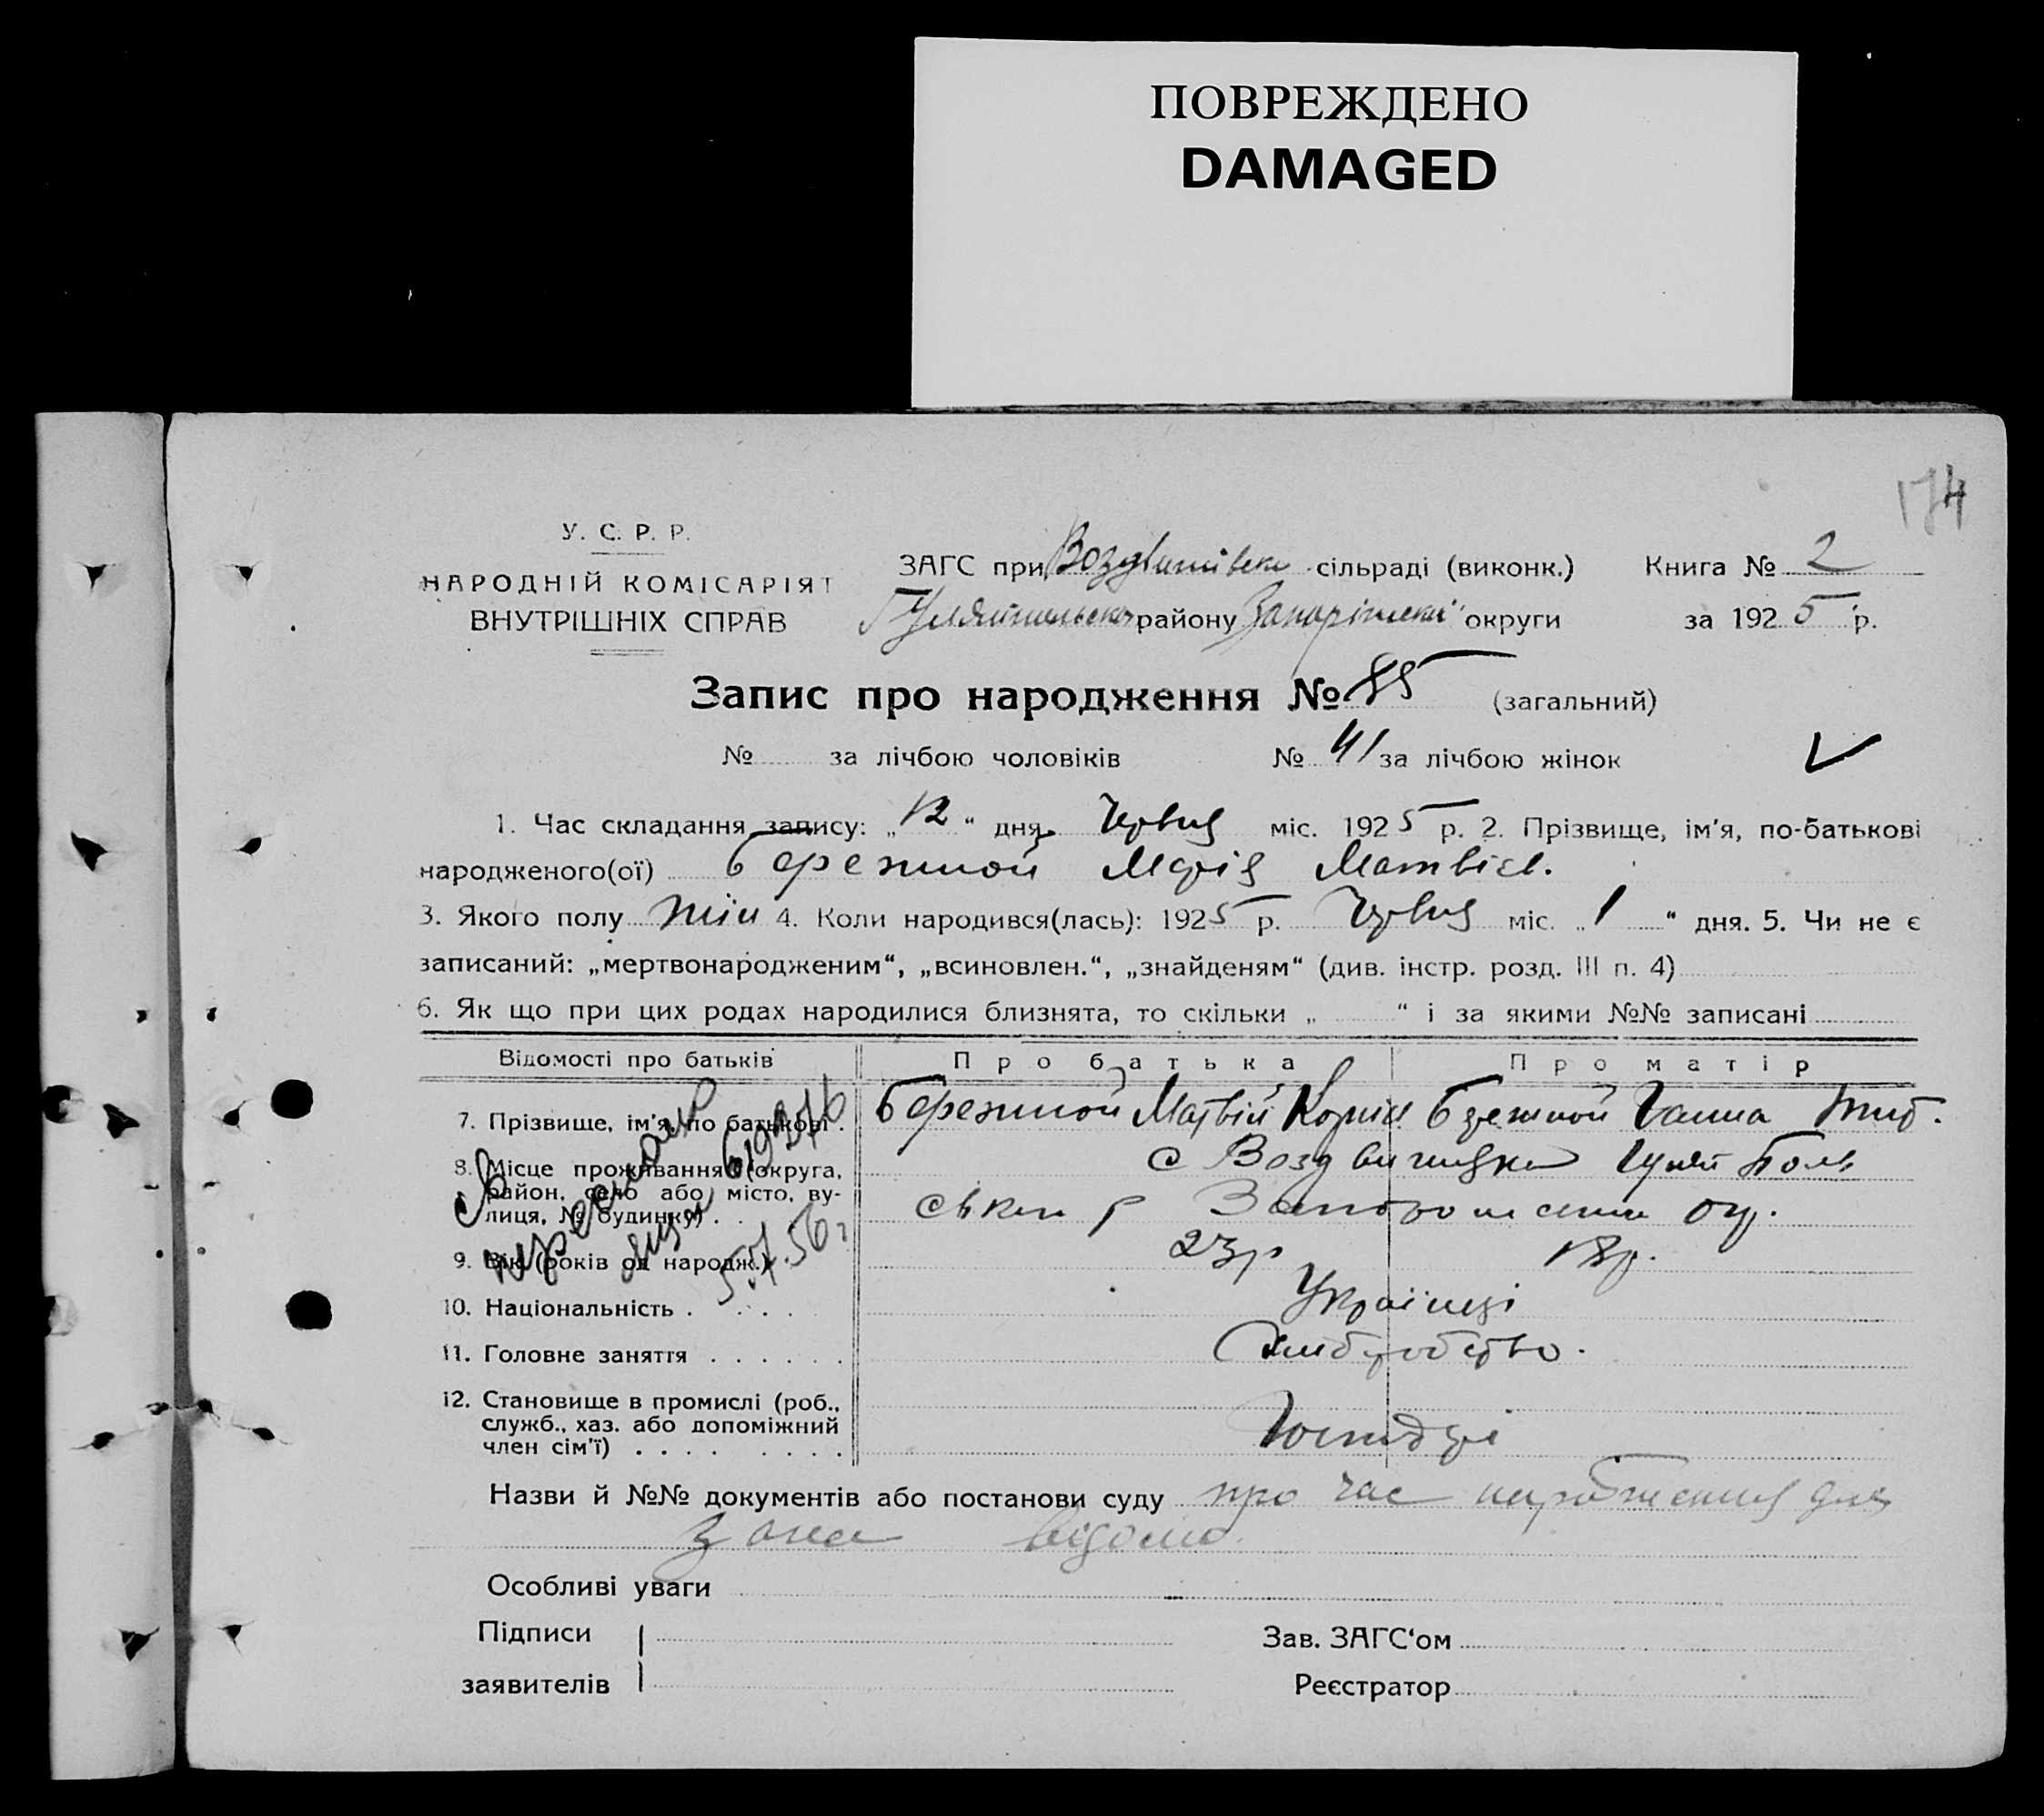 ПОВРЕЖДЕНО
DAMAGED
174
У. С. Р. Р.
НАРОДНІЙ КОМІСАРІЯТ
ВНУТРІШНІХ СПРАВ
ЗАГС при Воздвижівськ сільраді (виконк.) Книга № 2
району Запоріжської округи за 192 5 р.
Запис про народження № 85 (загальний)
№ за лічбою чоловіків № 41 за лічбою жінок
1. Час складання запису: „ 12 “ дня Червця міс. 192 5 р. 2. Прізвище, ім'я, по-батькові
народженого(ої) Бережной Марія Матвієв.
3. Якого полу жін 4. Коли народився(лась): 192 5 р. Червця міс. „ 1 “ дня. 5. Чи не є
записаний: „мертвонародженим“, „всиновлен.“, „знайденям“ (див. інстр. розд. III п. 4)
6. Як що при цих родах народилися близнята, то скільки „ “ і за якими №№ записані
Відомості про батьків Про батька Про матір
7. Прізвище, ім'я, по батькові . Бережной Матвій Корній Бережной Ганна Тим.
8. Місце проживання (округа, с Воздвижидки Гуляй Поль
район, село або місто, ву-
лиця, № будинку) . ськи р Запорожськи ок.
9. Вік (років од народж.) 23 р 18 р.
10. Національність . . . . Українці
11. Головне заняття . . . . . . Хліборобство.
12. Становище в промислі (роб.,
служб., хаз. або допоміжний Господарі
член сім'ї) . . . . . . . .
5.7.56 г
Назви й №№ документів або постанови суду про час народження для
загса відомо.
Особливі уваги
Підписи Зав. ЗАГС‘ом
заявителів Реєстратор